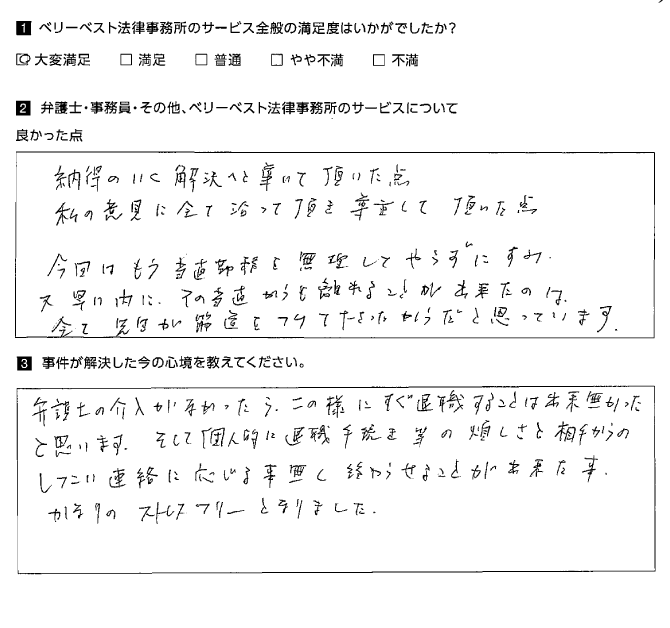 1 ベリーベスト法律事務所のサービス全般の満足度はいかがでしたか？
大変満足 □ 満足 □ 普通 □ やや不満 □ 不満
2 弁護士・事務員・その他、ベリーベスト法律事務所のサービスについて
良かった点
納得のいく解決へと導いて頂いた点
私の意見に全て沿って頂き尊重して頂いた点
今回はもう当直勤務を無理してやらずにすみ.
又早い内に、その当直からも離れることが出来たのは、
全て先生が筋道をつけて下さったからだと思っています.
3 事件が解決した今の心境を教えてください。
弁護士の介入がなかったら、この様にすぐ退職することは出来無かった
と思います. そして個人的に退職手続き等の煩しさと相手からの
しつこい連絡に応じる事無く終わらせることが出来た事.
かなりのストレスフリーとなりました.